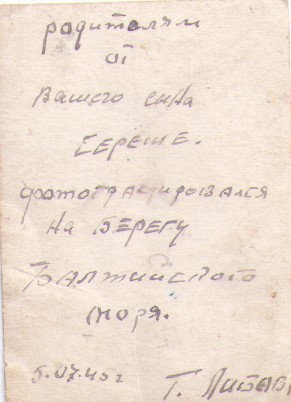 родителям
от
Вашего сына
Сереже.
фотографировался
на БЕРЕГУ
БАЛТИЙСКОГО
моря.
5.07.45 г Г. Либава